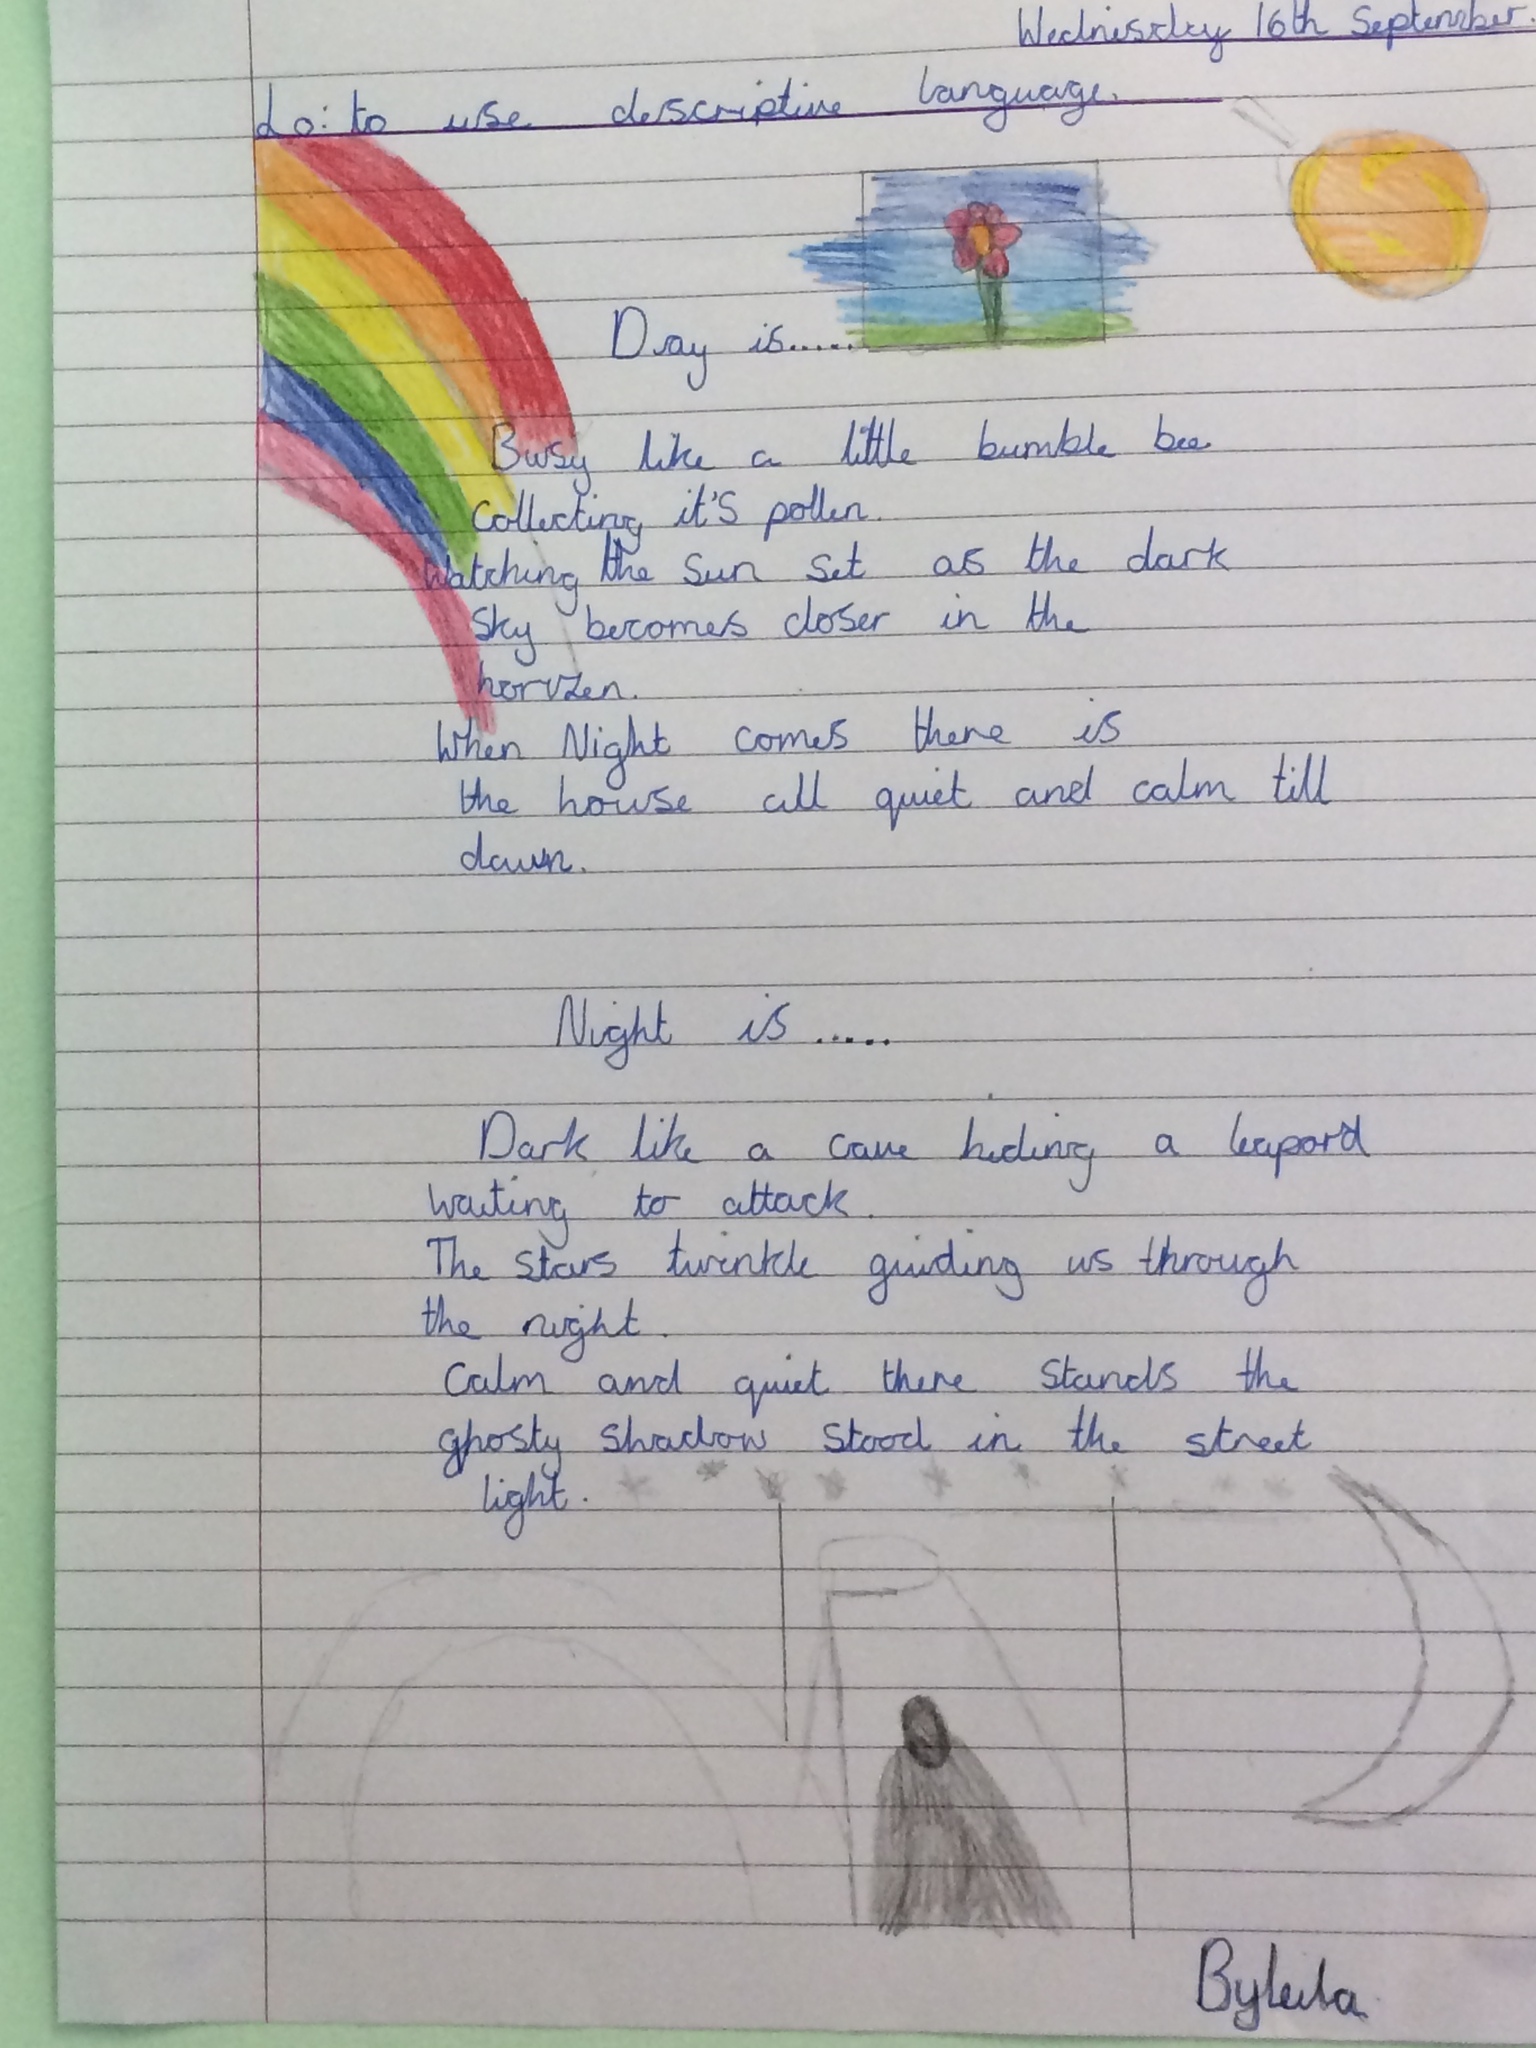 Wednesday 16th September.
Lo: to use descriptive language.
Day is.....
Busy like a little bumble bee
collecting it's pollen.
Watching the sun set as the dark
sky becomes closer in the
horizen.
When Night comes there is
the house all quiet and calm till
dawn.
Night is .....
Dark like a cave hiding a leapord
waiting to attack.
The stars twinkle guiding us through
the night.
Calm and quiet there stands the
ghosty shadow stood in the street
light.
By Leila